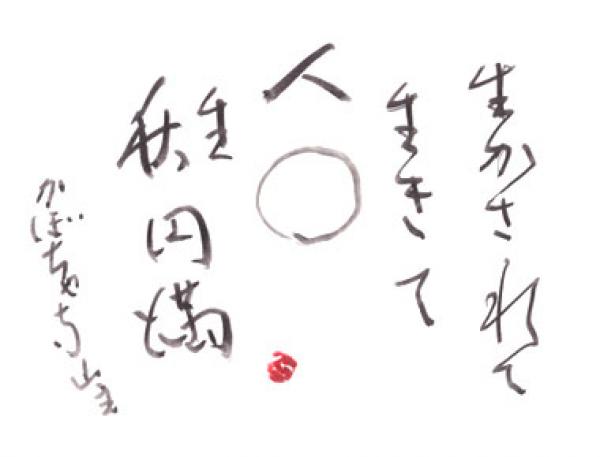 生かされて
生きて
人〇
生
円満
かぼちゃ寺山主